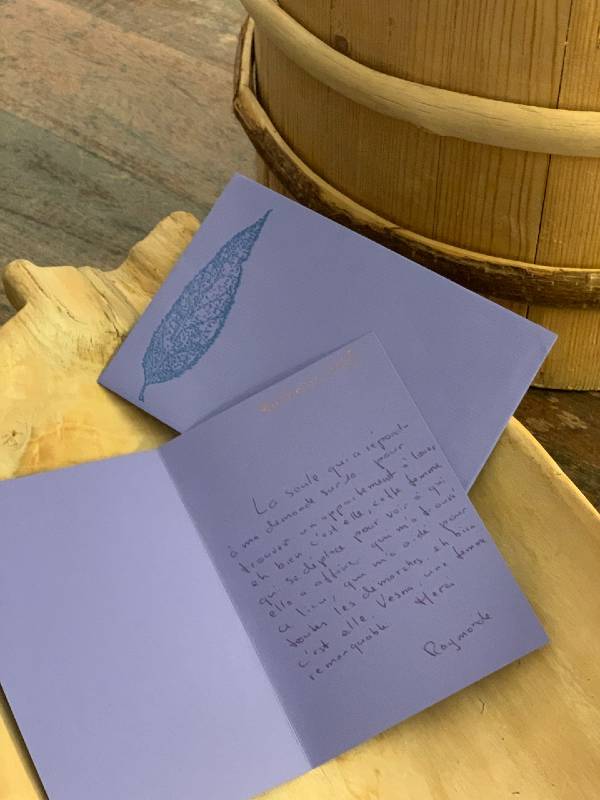 La seule qui a répondu
à ma demande sur le pour
trouver un appartement à louer
eh bien c'est elle, cette femme
qui se déplace pour voir à qui
elle a affaire qui m'a trouvé
ce lieu, qui m'a aidé pour
toutes les démarches, eh bien
c'est elle. Vesna, une femme
remarquable Merci
Raymonde